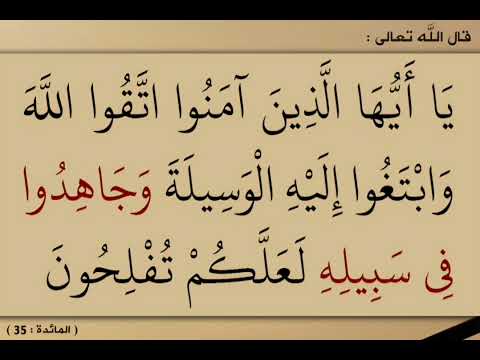 قال الله تعالى :
يَا أَيُّهَا الَّذِينَ آمَنُوا اتَّقُوا اللَّهَ
وَابْتَغُوا إِلَيْهِ الْوَسِيلَةَ وَجَاهِدُوا
فِي سَبِيلِهِ لَعَلَّكُمْ تُفْلِحُونَ
( المائدة : 35 )